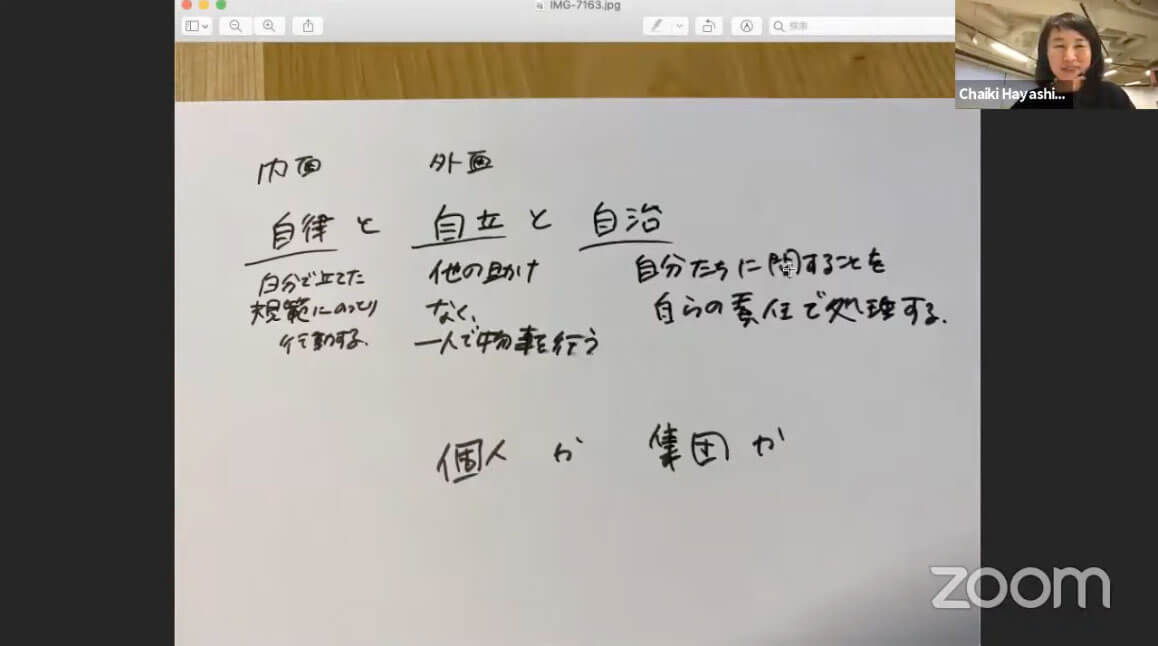 IMG-7163.jpg
検索
Chaiki Hayashi...
内面 外面
自律と 自立と 自治
自分で立てた
規範にのっとり
行動する.
他の助け
なく、
一人で物事を行う
自分たちに関することを
自らの責任で処理する.
個人か 集団か
zoom